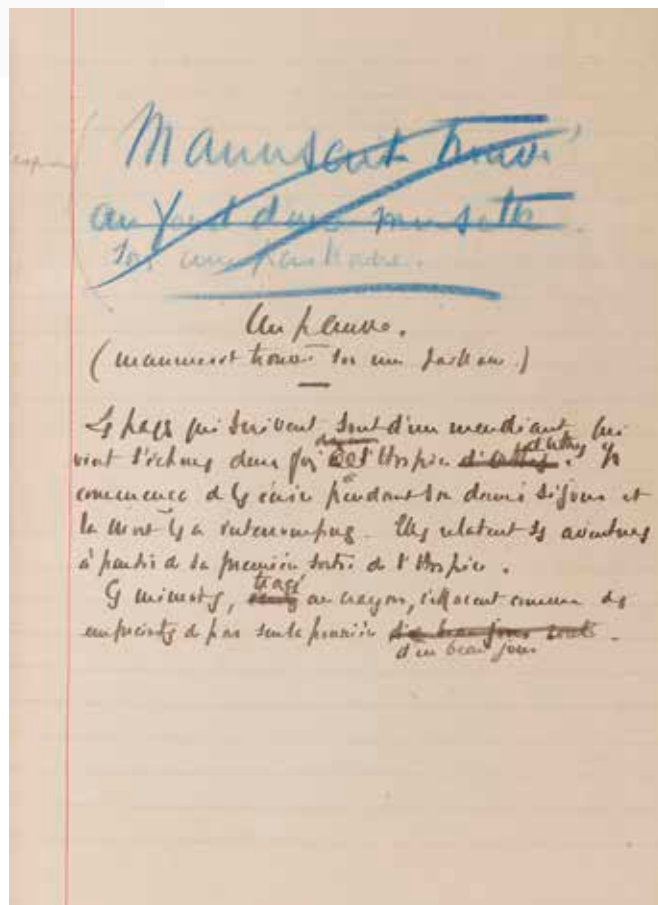 Manuscrit trouvé
au fond d'une musette
sur une paillasse.
Un pauvre.
(manuscrit trouvé sur une paillasse)
Les pages qui suivent sont d'un mendiant qui
vint s'échouer deux fois l'Hospice d'
commencé de les écrire pendant son dernier séjour et
la mort les a interrompues. Elles relatent ses aventures
à partir de sa première sortie de l'Hospice.
tracés
Ces , au crayon, s'effacent comme des
empreintes de pas sur la poussière
d'un beau jour